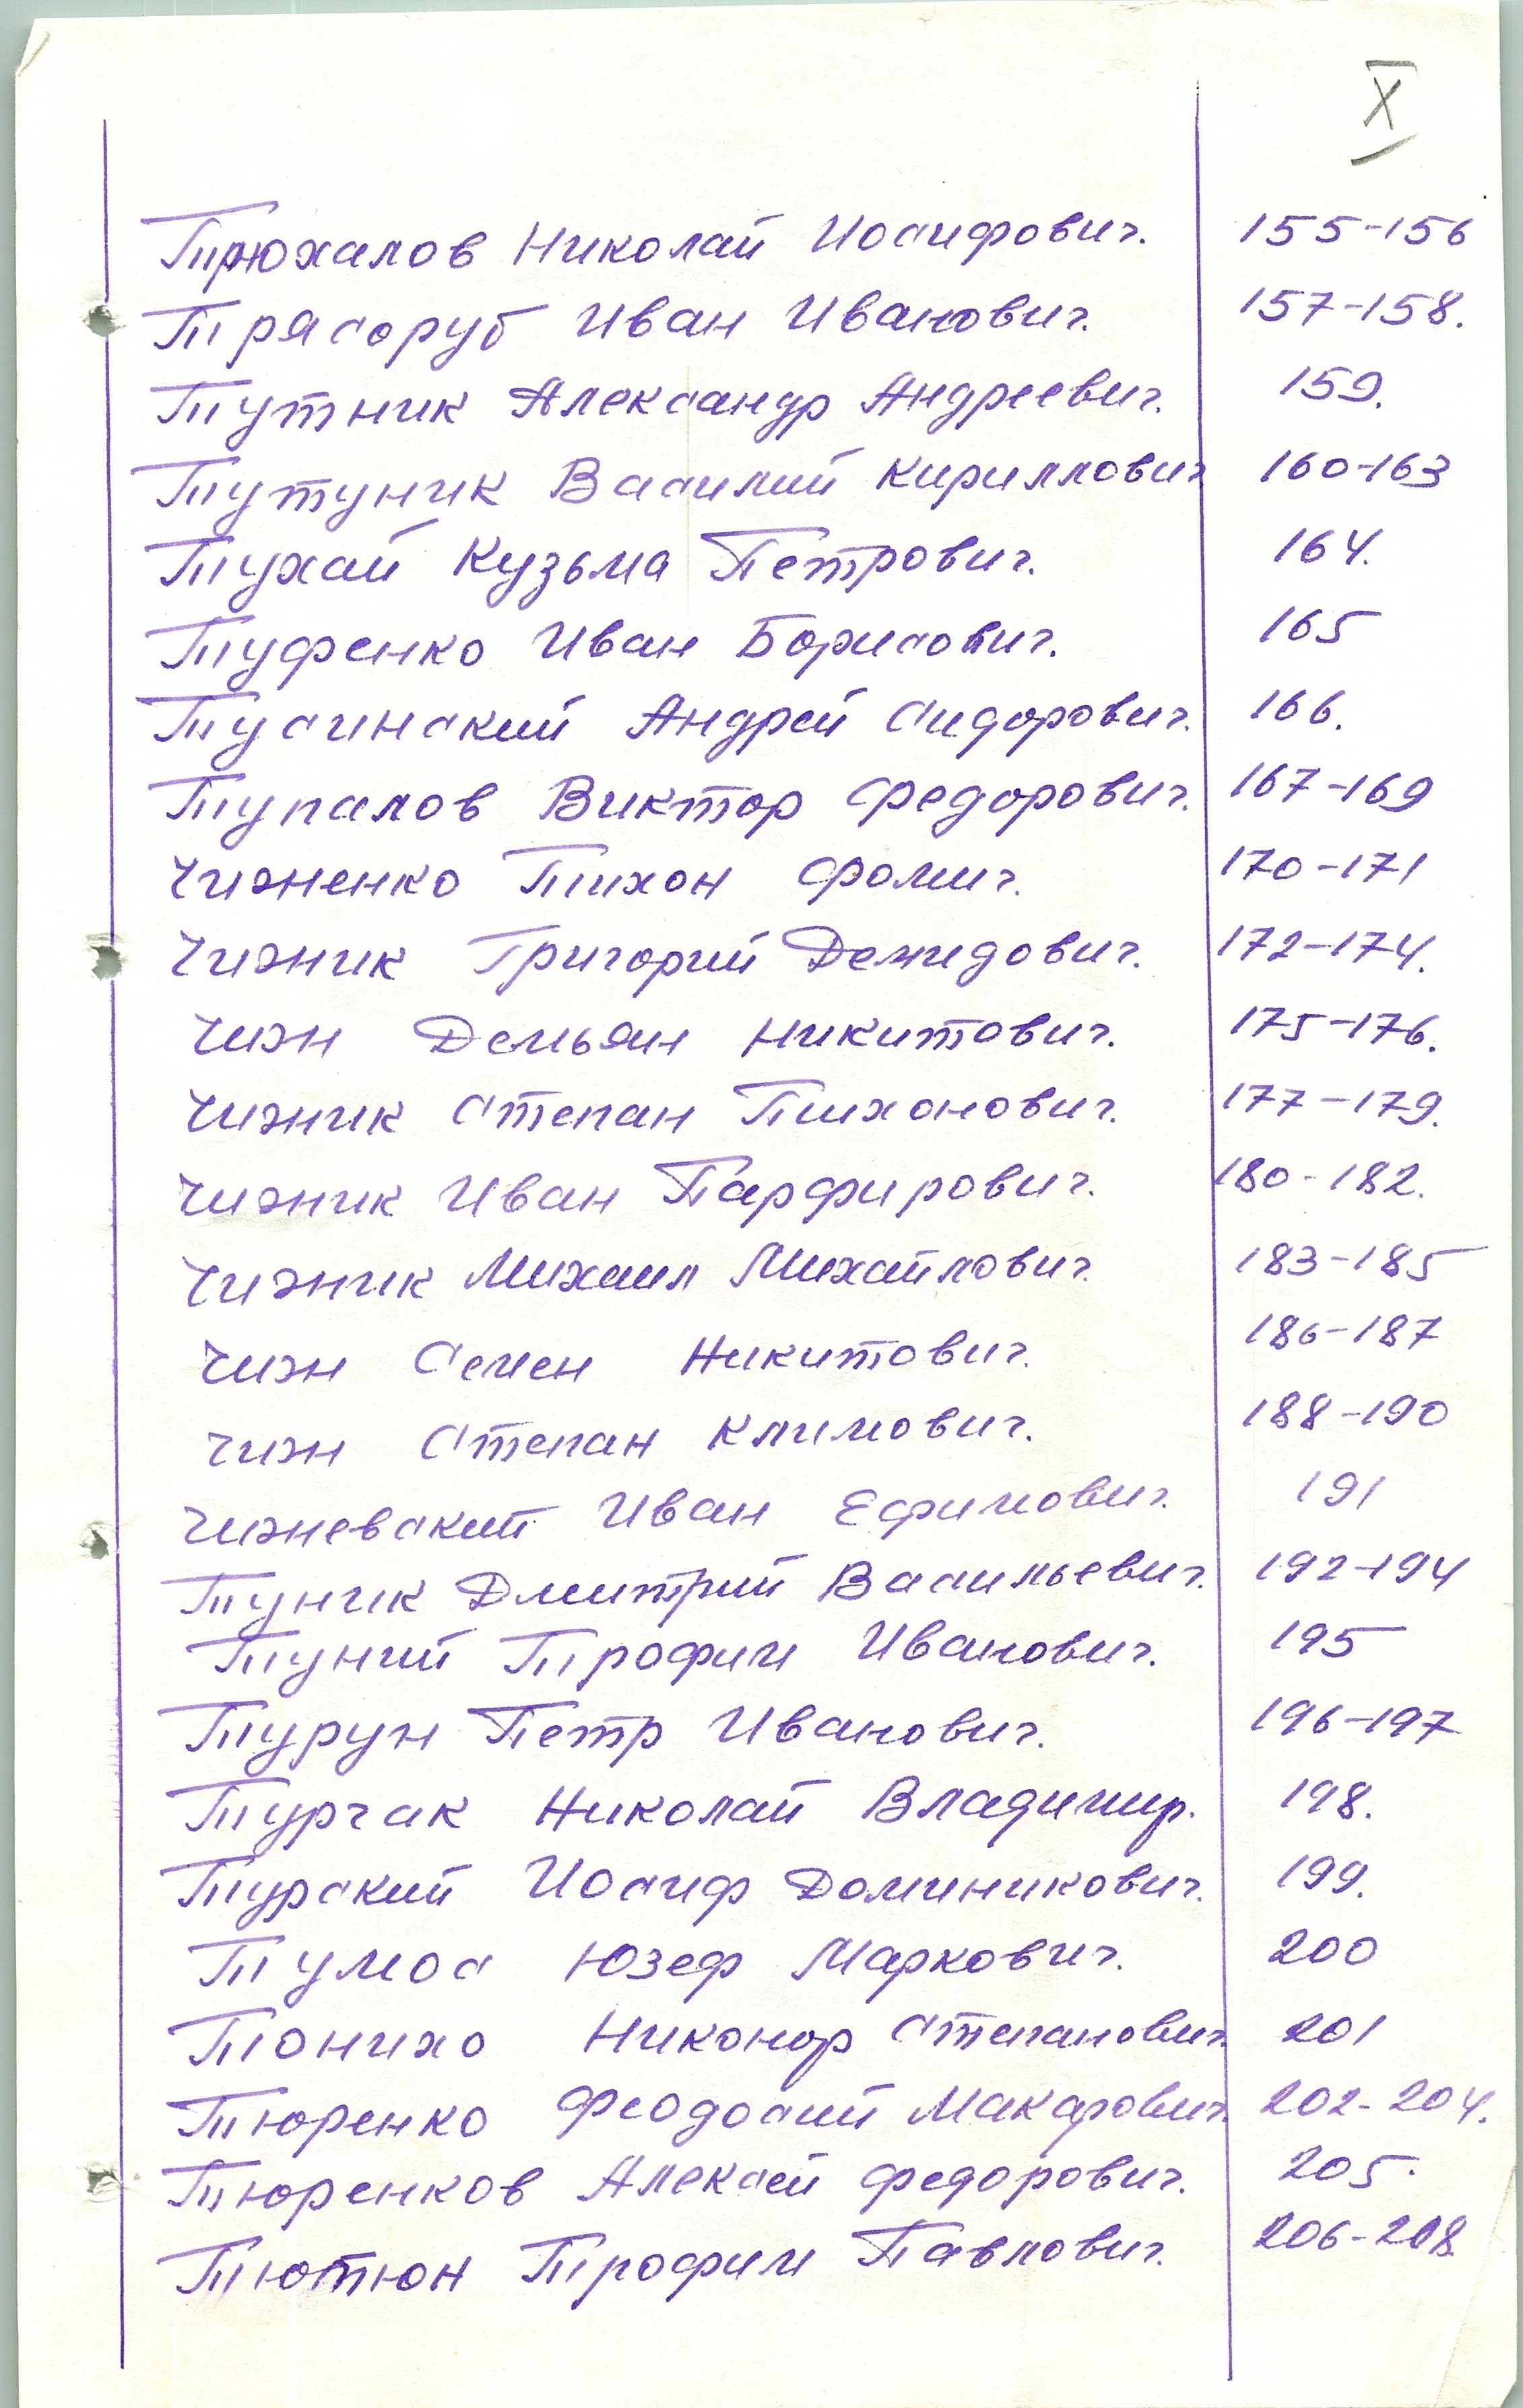 X
Трюхалов Николай Иосифович. 155-156
Трясоруб Иван Иванович. 157-158.
Тутник Александр Андреевич. 159.
Тутуник Василий Кириллович 160-163
Тухай Кузьма Петрович. 164.
Туфенко Иван Борисович. 165
Тусинский Андрей Сидорович. 166.
Тупалов Виктор Федорович. 167-169
Чижненко Тихон Фомич. 170-171
Чижик Григорий Демидович. 172-174.
Чиж Демьян Никитович. 175-176.
Чижик Степан Тихонович. 177-179.
Чижик Иван Парфирович. 180-182.
Чижик Михаил Михайлович. 183-185
Чиж Семен Никитович. 186-187
Чиж Степан Климович. 188-190
Чижевский Иван Ефимович. 191
Туник Дмитрий Васильевич. 192-194
Туний Трофим Иванович. 195
Турун Петр Иванович. 196-197
Турчак Николай Владимир. 198.
Турский Иосиф Доминикович. 199.
Тумос Юзеф Маркович. 200
Тонихо Никонор Степанович 201
Тюренко Феодосий Макарович. 202-204.
Тюренков Алексей Федорович. 205.
Тютюн Трофим Павлович. 206-208.